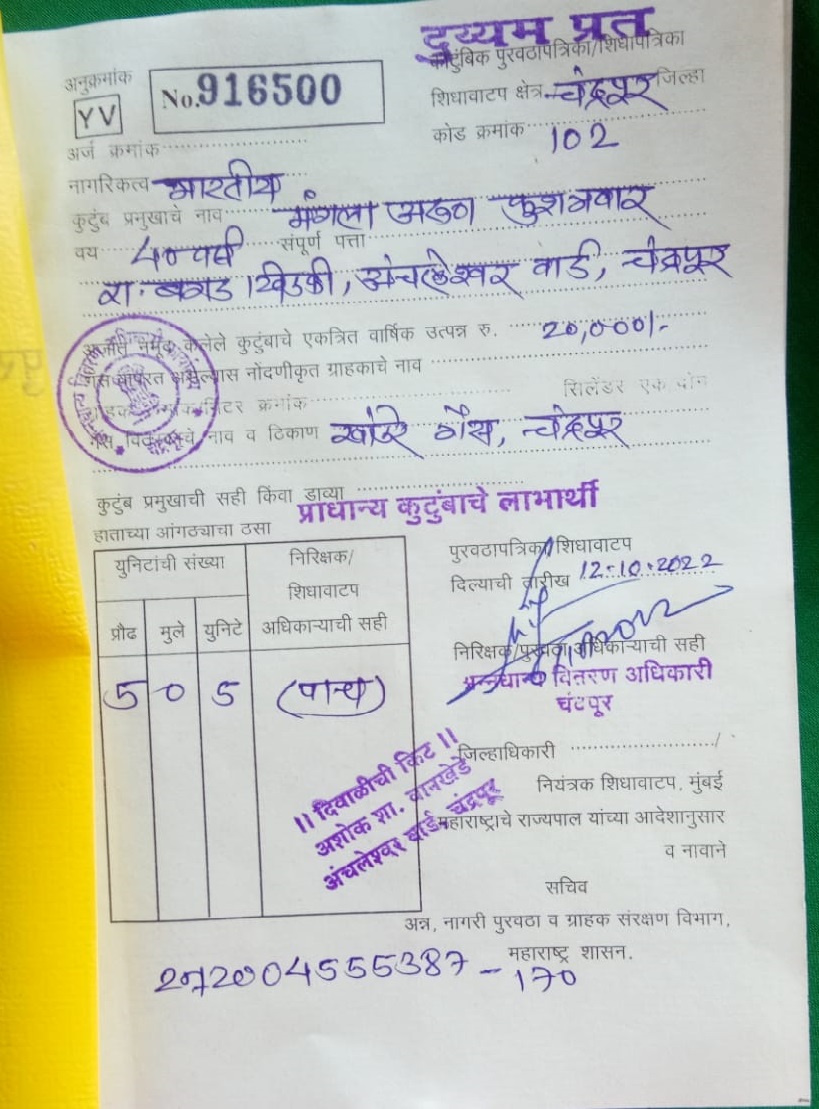 दुय्यम प्रत
कौटुंबिक पुरवठापत्रिका/शिधापत्रिका
अनुक्रमांक
YV
No.916500
शिधावाटप क्षेत्र चंद्रपूर जिल्हा
कोड क्रमांक 102
अर्ज क्रमांक
नागरिकत्व भारतीय
कुटुंब प्रमुखाचे नाव मंगला अरुण
वय 40 वर्षे संपूर्ण पत्ता
रा. बगड खिडकी, अंचलेश्वर वार्ड, चंद्रपूर
अर्जात नमूद केलेले कुटुंबाचे एकत्रित वार्षिक उत्पन्न रु. 20,000/-
गॅस वापरत असल्यास नोंदणीकृत ग्राहकाचे नाव
ग्राहक क्रमांक/मिटर क्रमांक सिलेंडर एक दोन
गॅस विक्रेत्याचे नाव व ठिकाण खांडरे गॅस, चंद्रपूर
कुटुंब प्रमुखाची सही किंवा डाव्या
हाताच्या आंगठ्याचा ठसा
प्राधान्य कुटुंबाचे लाभार्थी
युनिटांची संख्या
निरिक्षक/
शिधावाटप
अधिकाऱ्याची सही
प्रौढ मुले युनिटे
5 0 5 (पाच)
पुरवठापत्रिका/शिधावाटप
दिल्याची तारीख 12.10.2022
निरिक्षक/पुरवठा अधिकाऱ्याची सही
अन्नधान्य वितरण अधिकारी
चंद्रपूर
॥ दिवाळीची किट ॥
अशोक शा. वानखेडे
अंचलेश्वर वार्ड, चंद्रपूर
जिल्हाधिकारी /
नियंत्रक शिधावाटप, मुंबई
महाराष्ट्राचे राज्यपाल यांच्या आदेशानुसार
व नावाने
सचिव
अन्न, नागरी पुरवठा व ग्राहक संरक्षण विभाग,
महाराष्ट्र शासन.
272004555387 - 170